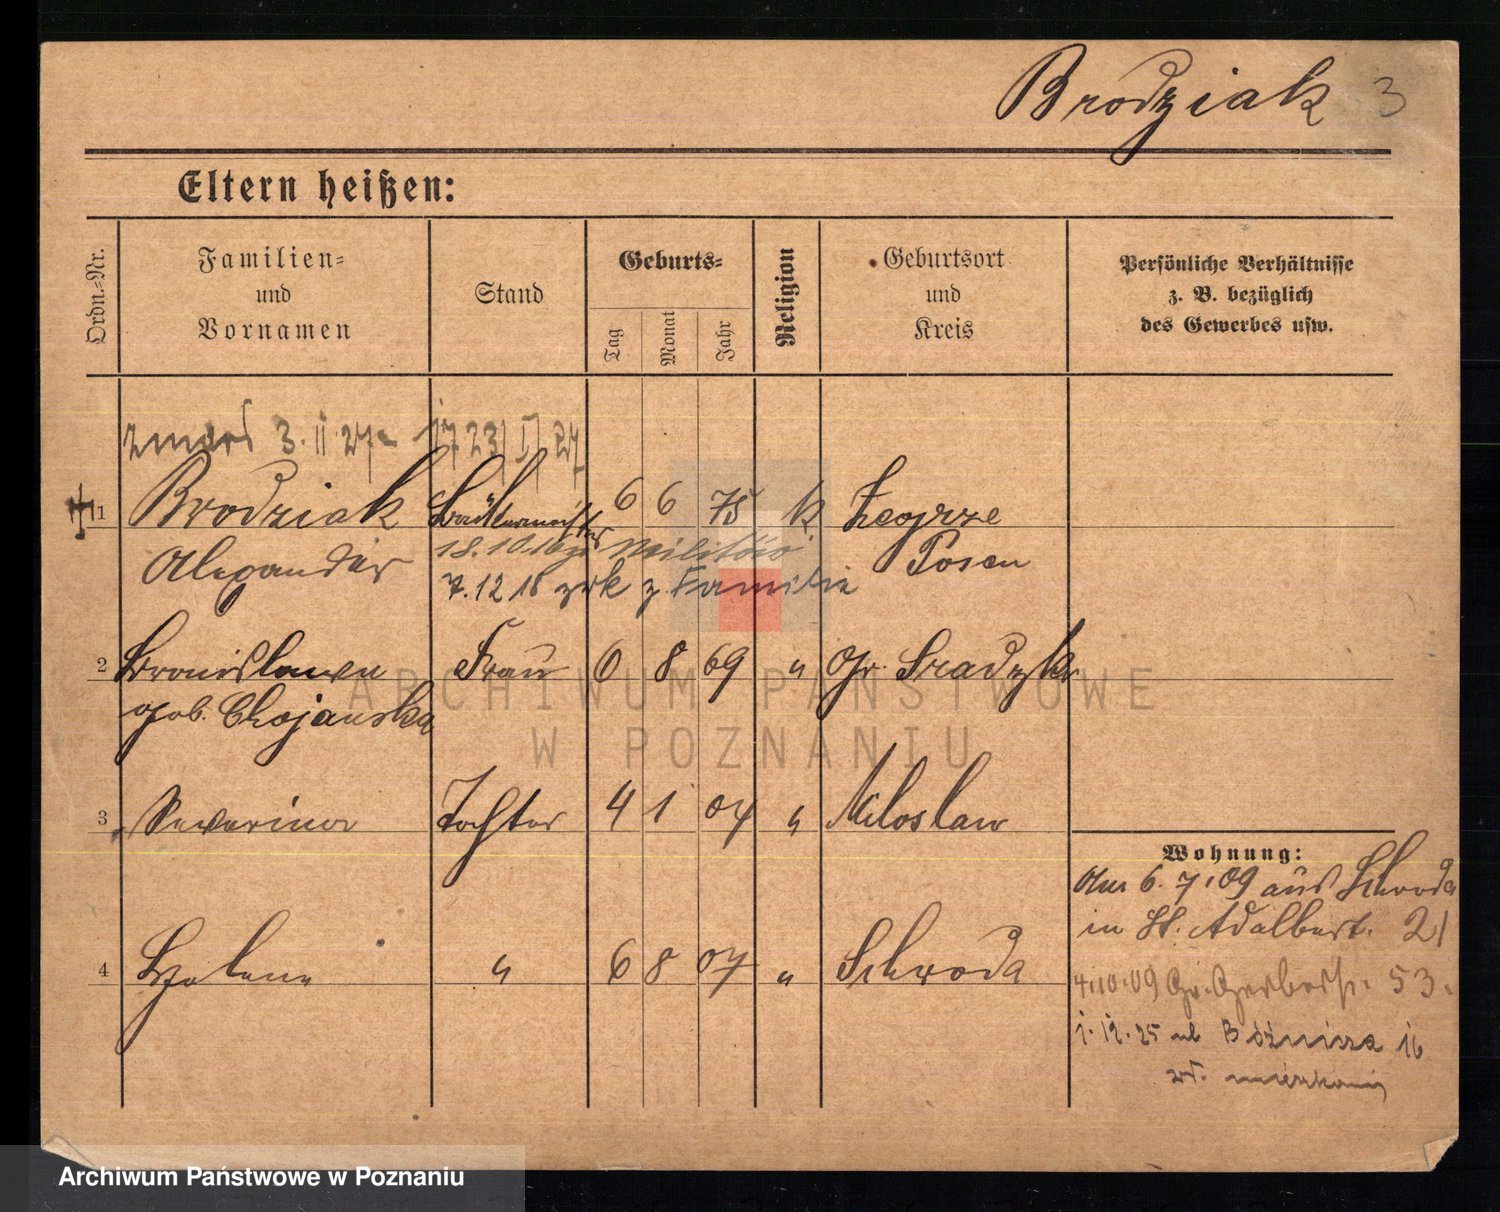 Brodziak 3
Eltern heißen:
Ordn.-Nr.
Familien-
und
Vornamen
Stand
Geburts-
Tag
Monat
Jahr
Religion
Geburtsort
und
Kreis
Persönliche Verhältnisse
z. B. bezüglich
des Gewerbes usw.
zmarł 3. II 27
1 Brodziak 6 6 75 k Zegrze
Alexander Posen
18.10.16 Militär
7.12 18 zrk z. Familie
2 Bronislawa Frau 6 8 69 " Gr.
geb. Chojanska
3 Severina Tochter 4 1 04 " Miloslaw
Wohnung:
6.7.09 aus Schroda
in St. Adalbert. 21
4 Helene " 6 8 07 " Schroda
4.10.09 Gr. Gerberstr. 53.
1.12.25 ul Bóżnicza 16
wł. mieszkanie
ARCHIWUM PAŃSTWOWE
W POZNANIU
Archiwum Państwowe w Poznaniu